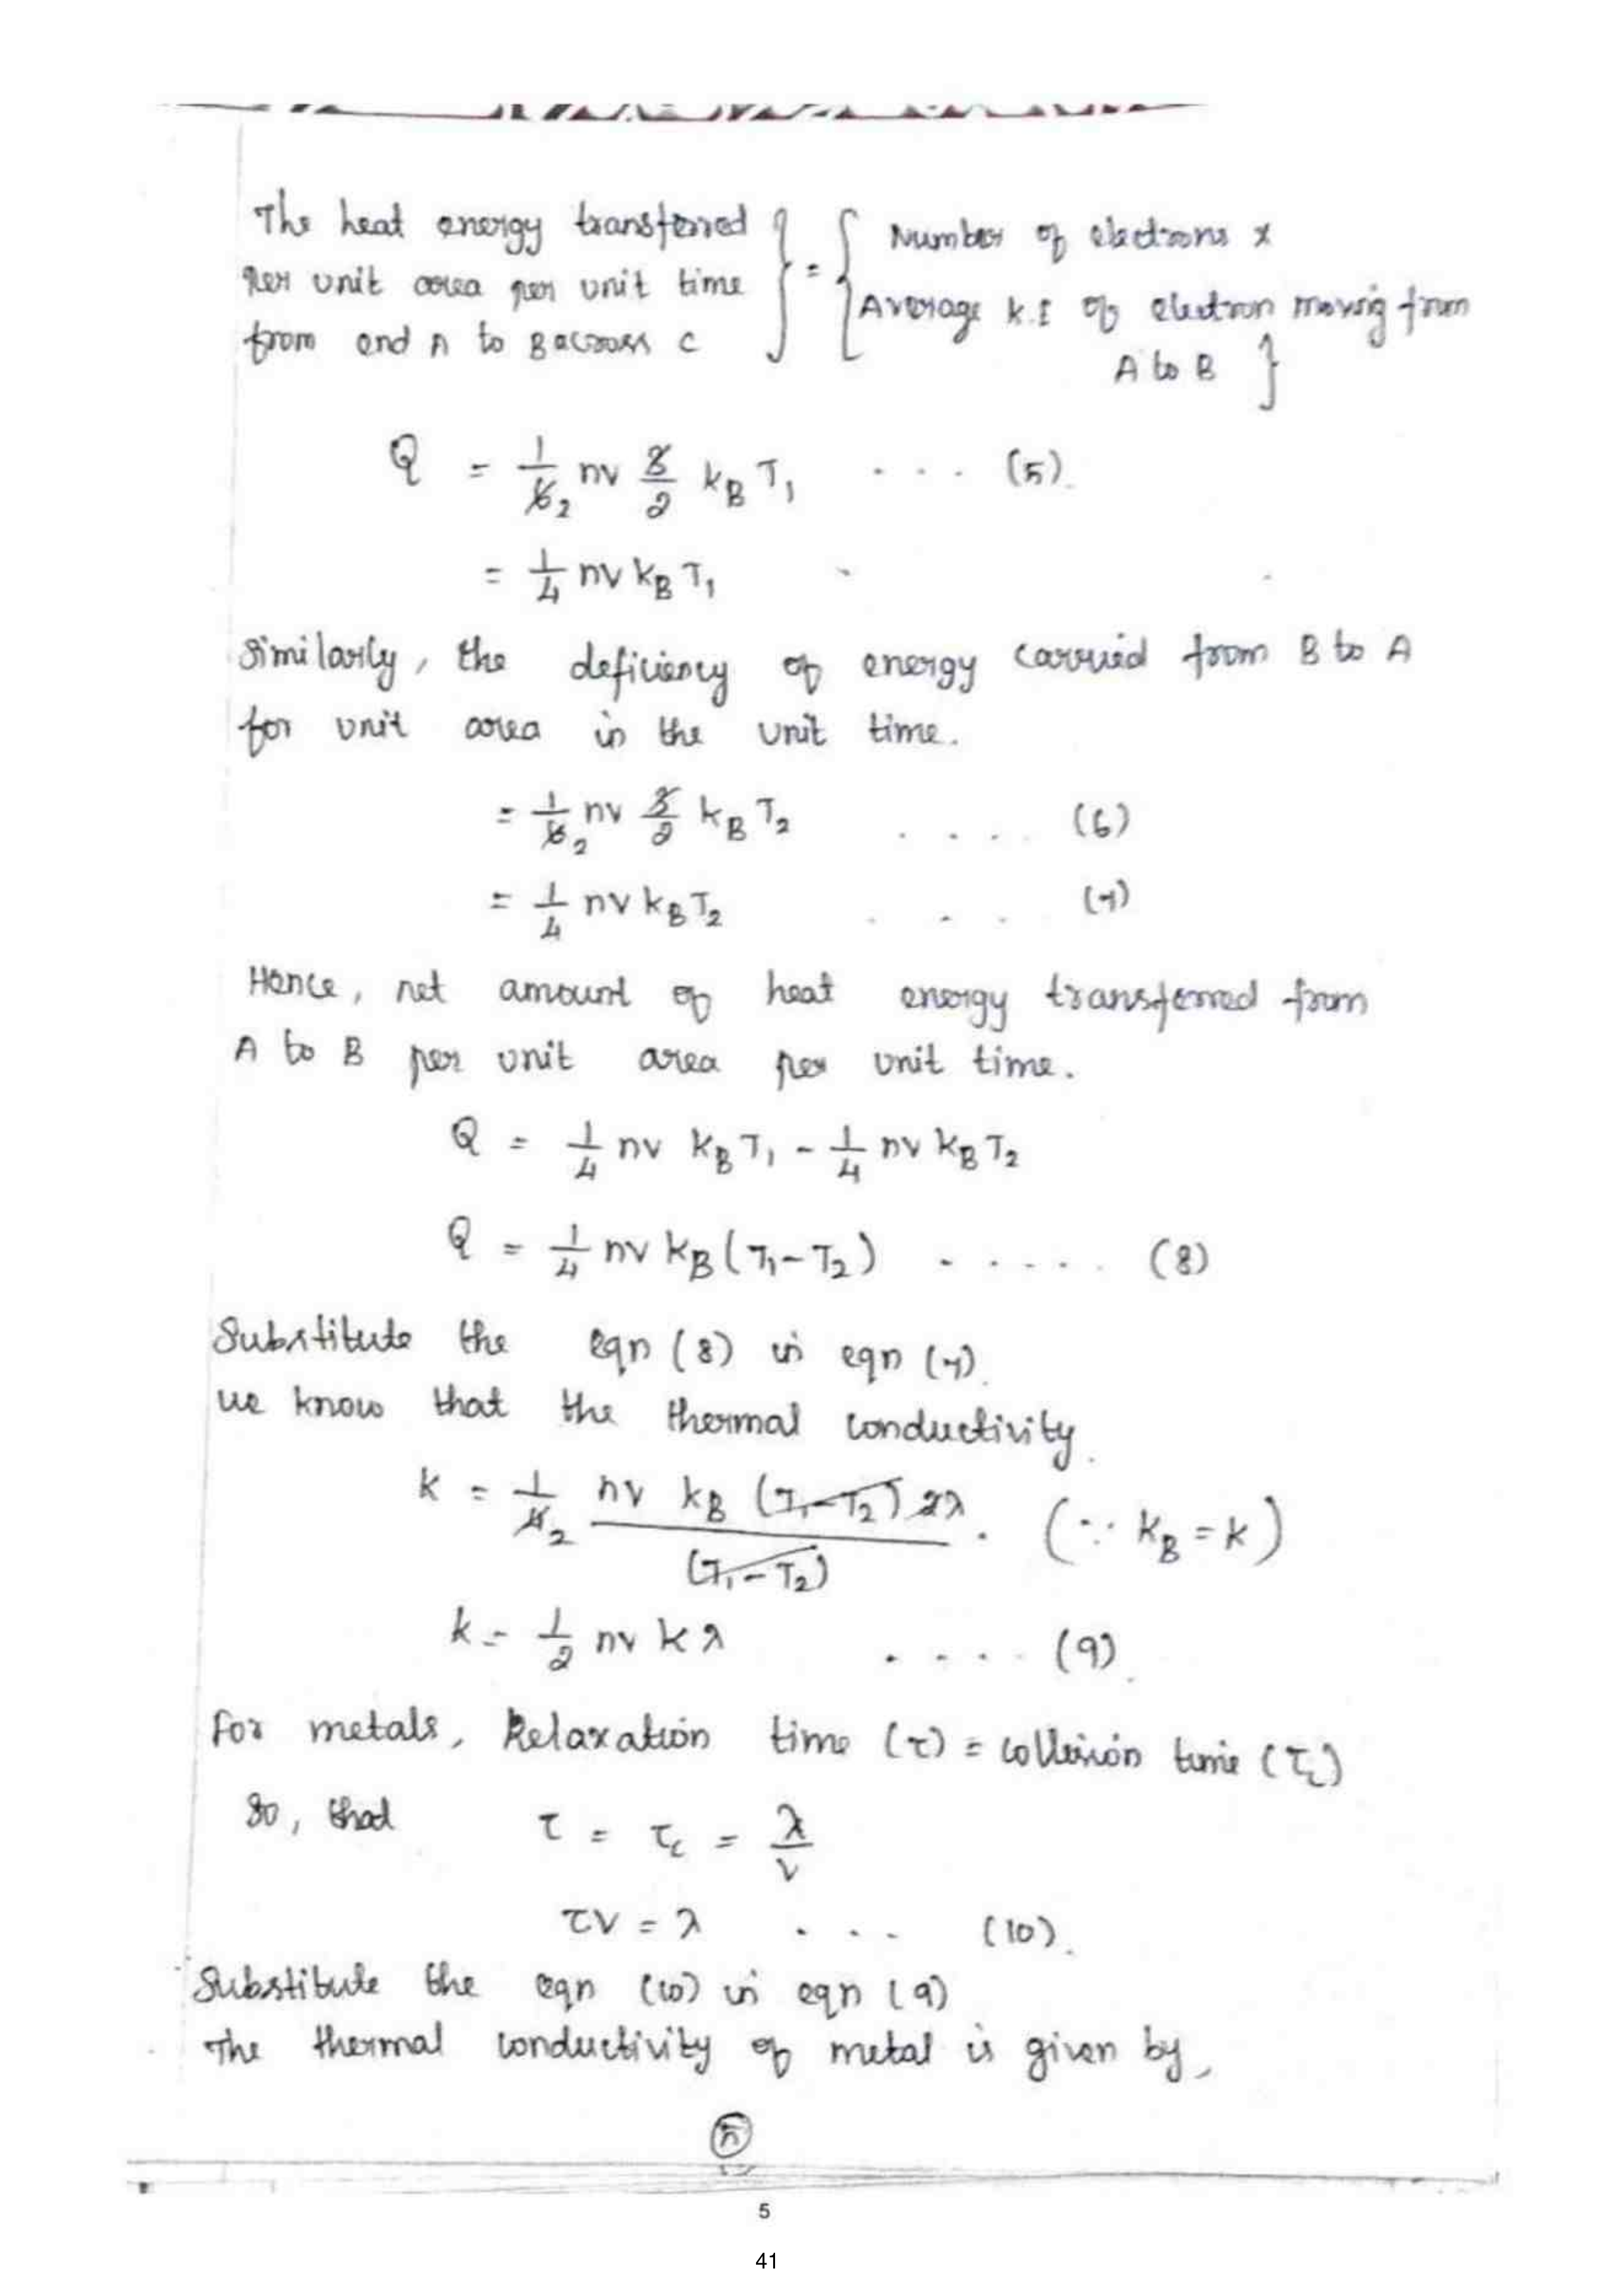 The heat energy transferred } = { Number of electrons x
per unit area per unit time Average K.E of electron moving from
from end A to B across C A to B }
Q = 1/6̸2 nv 3̸/2 kB T1 .... (5)
= 1/4 nv kB T1
Similarly, the deficiency of energy carried from B to A
for unit area in the unit time.
= 1/6̸2 nv 3̸/2 kB T2 .... (6)
= 1/4 nv kB T2 ... (7)
Hence, net amount of heat energy transferred from
A to B per unit area per unit time.
Q = 1/4 nv kB T1 - 1/4 nv kB T2
Q = 1/4 nv kB (T1 - T2) ..... (8)
Substitute the eqn (8) in eqn (7).
we know that the thermal conductivity.
k = 1/4̸2 nv kB (T1 - T2) 2λ / (T1 - T2) . (∵ kB = k)
k = 1/2 nv k λ .... (9)
For metals, Relaxation time (τ) = collision time (τc)
So, that τ = τc = λ/v
τv = λ ... (10).
Substitute the eqn (10) in eqn (9)
The thermal conductivity of metal is given by,
5
41